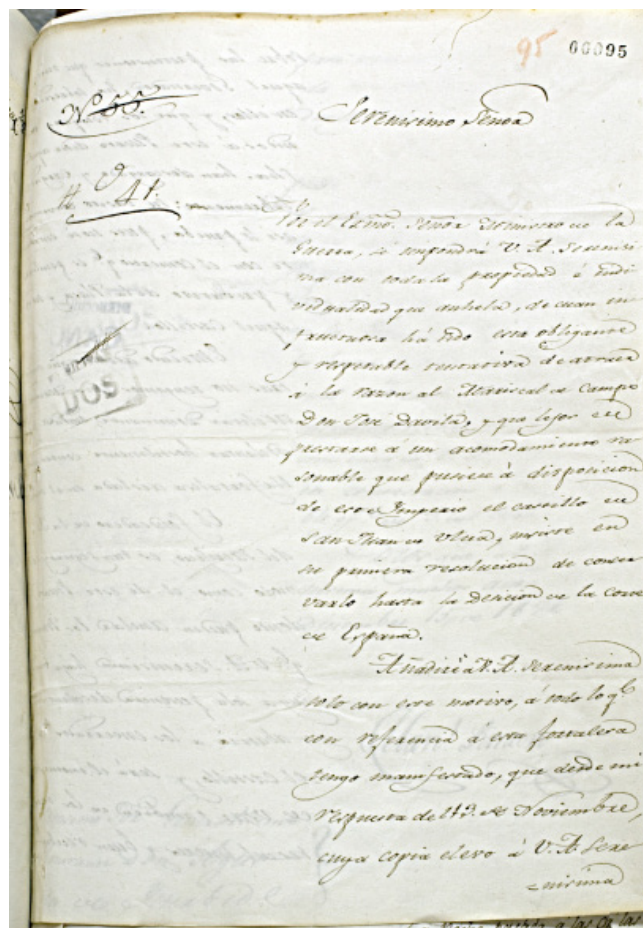 95 00095
N.º 55.
Serenisimo Señor
4 1.
Por el Exmo. Señor Ministro de la
Guerra, se impondrá V. A. Serenisi
ma con toda la propiedad é indi
vidualidad que anhela, de cuan in
fructuosa há sido esta obligante
y respetable tentativa de atraer
á la razon al Mariscal de Campo
Don José Davila, y que lejos de
prestarse á un acomodamiento ra
sonable que pusiese á disposicion
de este Imperio el castillo de
San Juan de Ulua, insiste en
su primera resolucion de conser
varlo hasta la Desicion de la Corte
de España.
Añadiré á V. A. Serenisima
solo con este motivo, á todo lo q.e
con referencia á esta fortaleza
tengo manifestado, que desde mi
respuesta de 19. de Noviembre,
cuya copia elevo á V. A. Sere
nisima
DOS